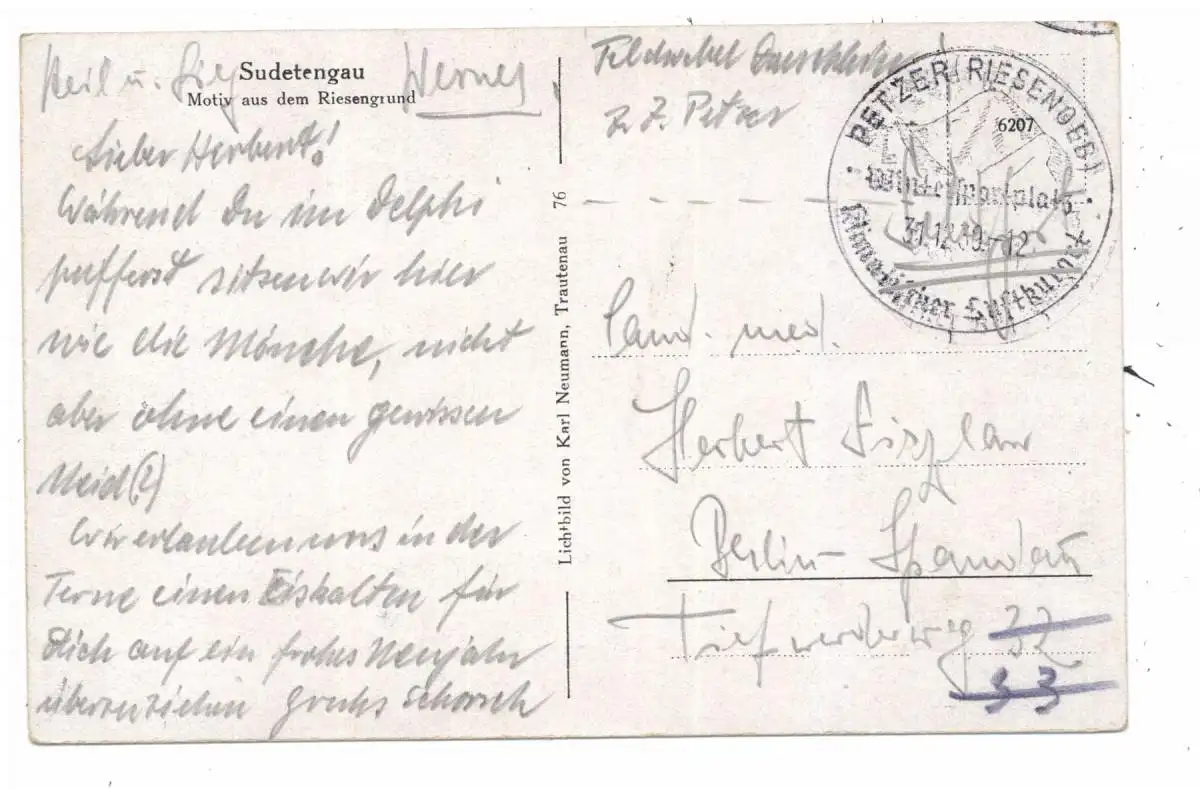 Heil u. Sieg Werner
Sudetengau
Motiv aus dem Riesengrund
Lieber Herbert!
Während Du im Delphi
pufferst sitzen wir hier
wie die Mönche, nicht
aber ohne einen gewissen
Neid(?)
Wir erlauben uns in der
Ferne einen Eiskalten für
Dich auf ein frohes Neujahr
überzuziehen Schorsch
Lichtbild von Karl Neumann, Trautenau 76
Feldwebel
z. Z. Petzer
PETZER (RIESENGEB)
6207
Wintersportplatz
31.12.39.-12
Klimatischer Luftkurort
Cand. med.
Herbert
Berlin-Spandau
Tiefwerderweg 32
33